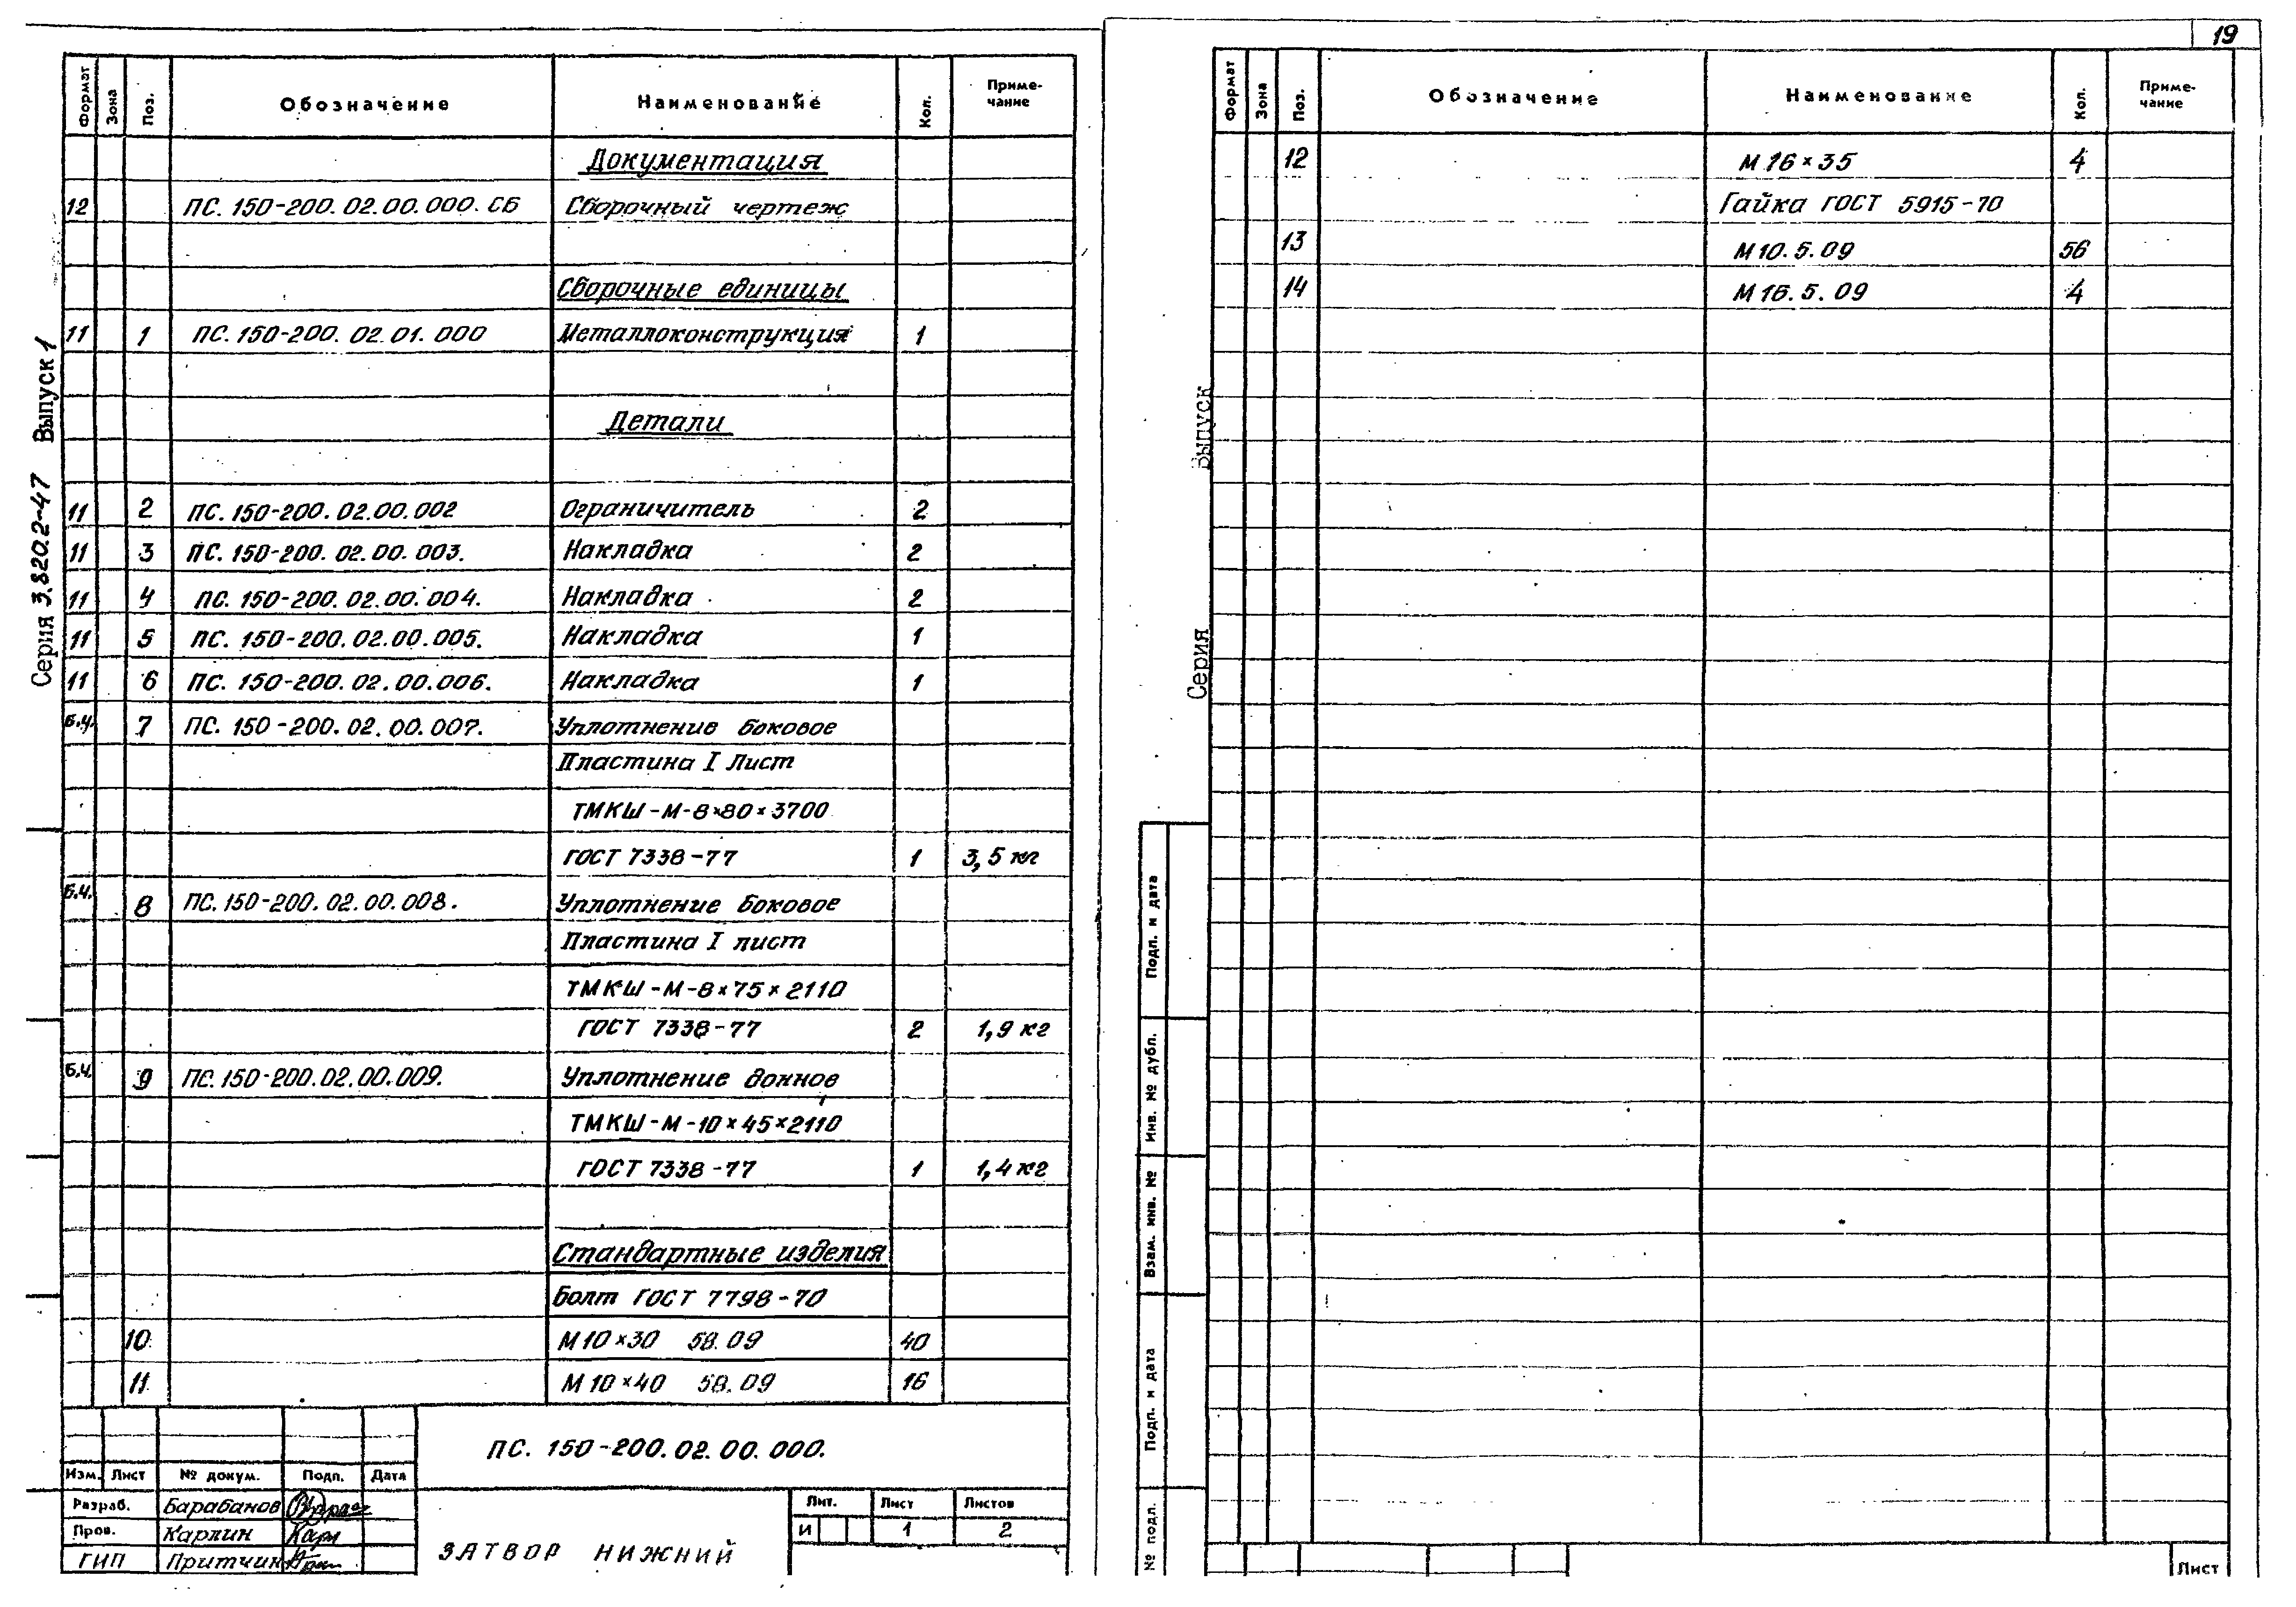 19
Серия 3.820.2-47 Выпуск 1
Формат Зона Поз. Обозначение Наименование Кол. Приме-
чание
Документация
12 ПС.150-200.02.00.000.СБ Сборочный чертеж
Сборочные единицы
11 1 ПС.150-200.02.01.000 Металлоконструкция 1
Детали
11 2 ПС.150-200.02.00.002 Ограничитель 2
11 3 ПС.150-200.02.00.003. Накладка 2
11 4 ПС.150-200.02.00.004. Накладка 2
11 5 ПС.150-200.02.00.005. Накладка 1
11 6 ПС.150-200.02.00.006. Накладка 1
Б.Ч. 7 ПС.150-200.02.00.007. Уплотнение боковое
Пластина I Лист
ТМКШ-М-8×80×3700
ГОСТ 7338-77 1 3,5 кг
Б.Ч. 8 ПС.150-200.02.00.008. Уплотнение боковое
Пластина I лист
ТМКШ-М-8×75×2110
ГОСТ 7338-77 2 1,9 кг
Б.Ч. 9 ПС.150-200.02.00.009. Уплотнение донное
ТМКШ-М-10×45×2110
ГОСТ 7338-77 1 1,4 кг
Стандартные изделия
Болт ГОСТ 7798-70
10 М10×30 58.09 40
11 М10×40 58.09 16
ПС.150-200.02.00.000.
Изм. Лист № докум. Подп. Дата
Разраб. Барабанов
Пров. Карлин
ГИП Притчин
ЗАТВОР НИЖНИЙ
Лит. Лист Листов
И 1 2
Серия Выпуск
Формат Зона Поз. Обозначение Наименование Кол. Приме-
чание
12 М16×35 4
Гайка ГОСТ 5915-70
13 М10.5.09 56
14 М16.5.09 4
Подп. и дата
Инв. № дубл.
Взам. инв. №
Подп. и дата
№ подл.
Лист